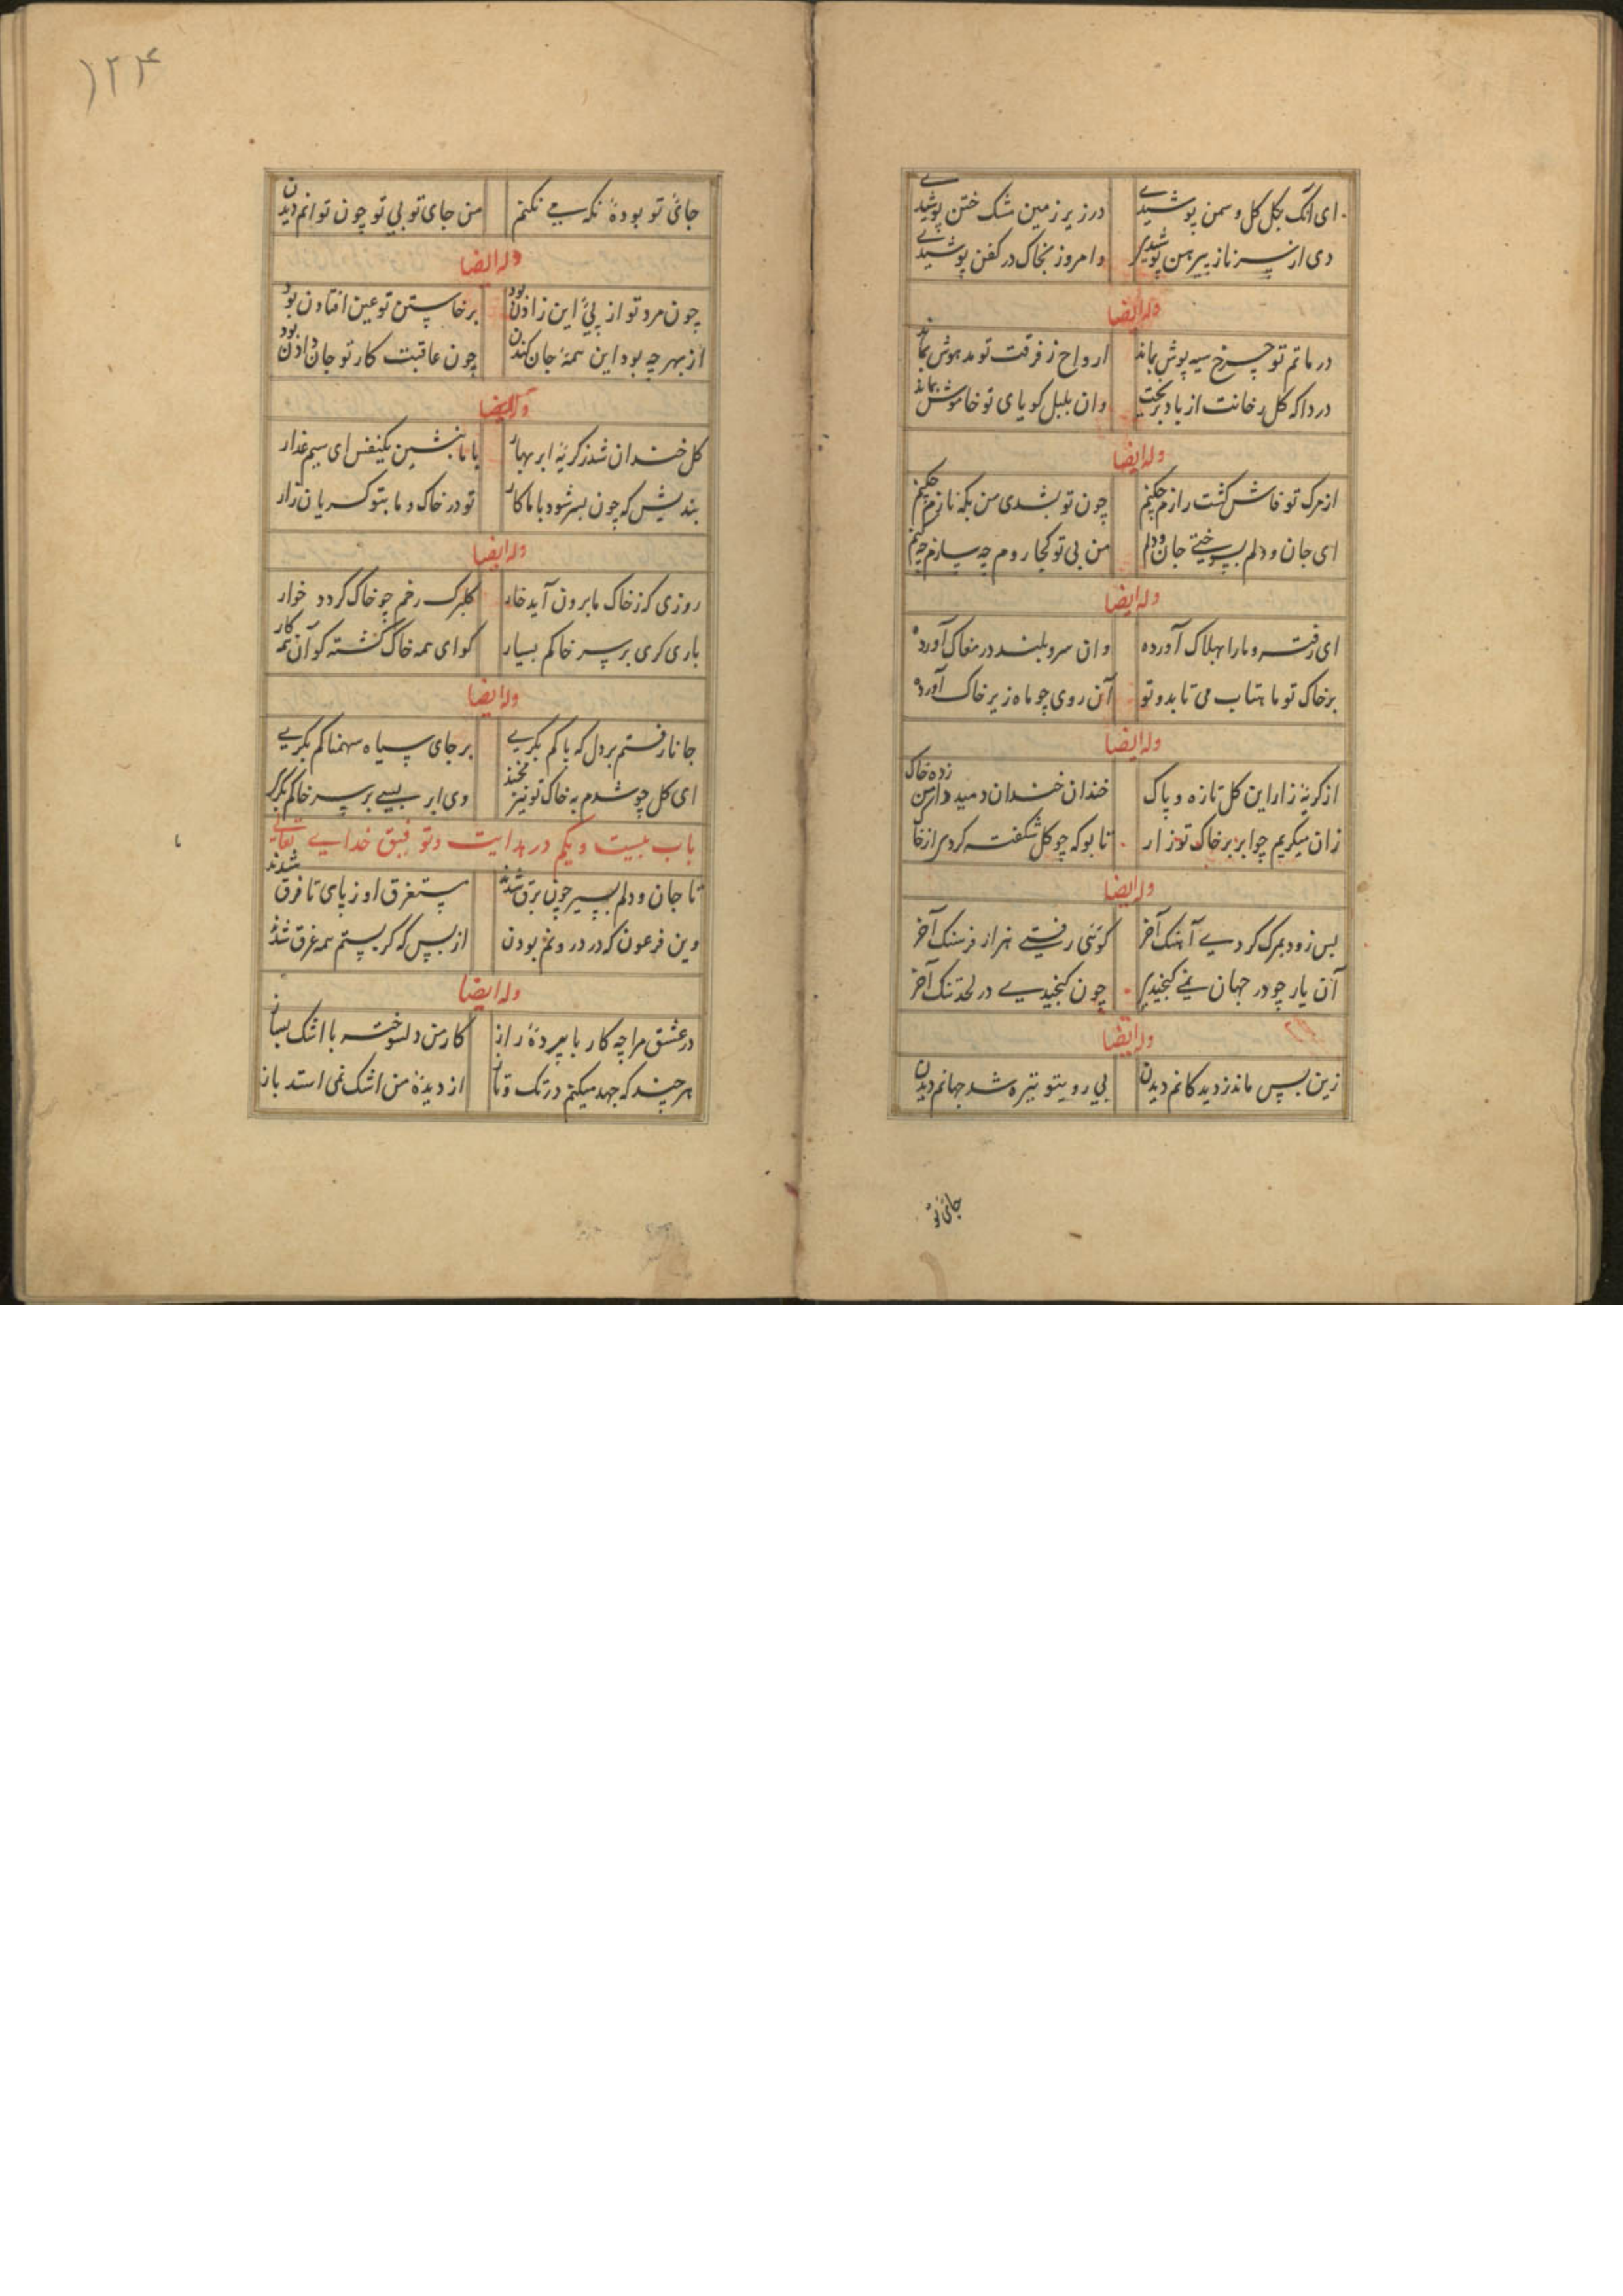 ای آنک بگل گل و سمن پوشیدی در زیر زمین مشک ختن پوشیدی
دی از سر ناز پیرهن پوشیدی و امروز بخاک در کفن پوشیدی
وله ایضا
در ماتم تو چرخ سیه پوش بماند ارواح ز فرقت تو مدهوش بماند
دردا که گل رخانت از باد بریخت وان بلبل کویای تو خاموش بماند
وله ایضا
از مرک تو فاش کشت رازم چکنم چون تو بشدی من بکه نازم چکنم
ای جان و دلم بسوختی جان و دلم من بی تو کجا روم چه سازم چکنم
وله ایضا
ای رفته و ما را بهلاک آورده وان سرو بلند در مغاک آورده
بر خاک تو ماهتاب می تابد و تو آن روی چو ماه زیر خاک آورده
وله ایضا
از کریهٔ زار این کل تازه و پاک خندان خندان دمید دامن زده خاک
زان میکریم چو ابر بر خاک تو زار تا بو که چو کل شکفته کردی از خاک
وله ایضا
بس زود بمرک کردی آهنک آخر کوئی رفتی هزار فرسنک آخر
آن یار چو در جهان نمی کنجیدی چون کنجیدی در لحد تنک آخر
وله ایضا
زین پس ماند ز دیدکانم دیدن بی روی تو تیره شد جهانم دیدن
جائی تو
۱۲۴
جائی تو بودهٔ نکه می نکنم من جای تو بی تو چون توانم دیدن
وله ایضا
چون مرد تو از پئ این زادن بود برخاستن تو عین افتادن بود
از بهر چه بود این همهٔ جان کندن چون عاقبت کار تو جان دادن بود
وله ایضا
کل خندان شد ز کریهٔ ابر بهار با ما بنشین یکنفس ای سیم عذار
بندیش که چون بسر شود با ما کار تو در خاک و ما بتو کریان زار
وله ایضا
روزی که ز خاک ما برون آید خار کلبرک رخم چو خاک کردد خوار
باری کری بر سر خاکم بسیار کو ای همه خاک کشته کو آن همه کار
وله ایضا
جانا رفتم بر دل که پاکم بکری بر جای سیاه سهمناکم بکری
ای کل چو شدم به خاک تو نیز مخند وی ابر بسی بر سر خاکم بکری
باب بیست و یکم در هدایت و توفیق خدایی تعالی
تا جان و دلم بسیر چون برق شدند مستغرق او ز پای تا فرق شدند
وین فرعون که در درونم بودن از بس که کریستم همه غرق شدند
وله ایضا
در عشق مرا چه کار با پردهٔ راز کار من دلسوخته با اشک بساز
هر چند که جهد میکنم در تک و تاز از دیدهٔ من اشک نمی استد باز